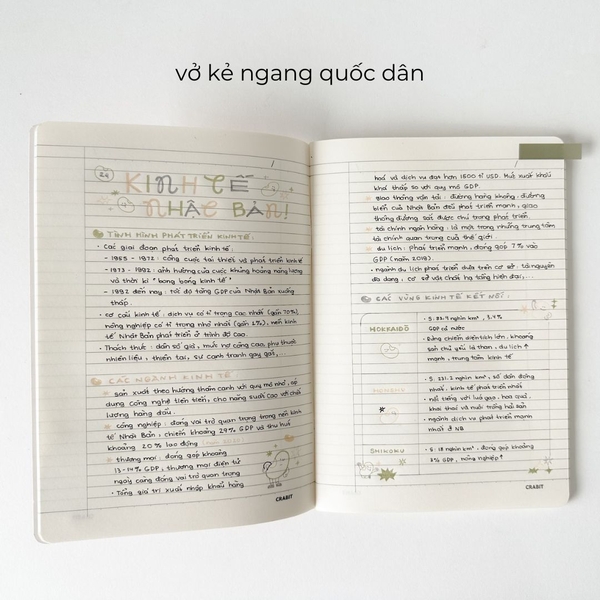 vở kẻ ngang quốc dân
24
KINH TẾ
NHẬT BẢN!
TÌNH HÌNH PHÁT TRIỂN KINH TẾ:
• Các giai đoạn phát triển kinh tế:
- 1955 - 1972: công cuộc tái thiết và phát triển kinh tế
- 1973 - 1992: ảnh hưởng của cuộc khủng hoảng năng lượng
và thời kì "bong bóng kinh tế"
- 1992 đến nay: tốc độ tăng GDP của Nhật Bản xuống
thấp.
• Cơ cấu kinh tế: dịch vụ có tỉ trọng cao nhất (gần 70%)
nông nghiệp có tỉ trọng nhỏ nhất (gần 1%), nền kinh
tế Nhật Bản phát triển ở trình độ cao.
• Thách thức: dân số già, mức nợ công cao, phụ thuộc
nhiên liệu, thiên tai, sự cạnh tranh gay gắt,
CÁC NGÀNH KINH TẾ
sản xuất theo hướng thâm canh với quy mô nhỏ, áp
dụng công nghệ tiên tiến, cho năng suất cao với chất
lượng hàng đầu.
công nghiệp: đóng vai trò quan trọng trong nền kinh
tế Nhật Bản: chiếm khoảng 29% GDP và thu hút
khoảng 20% lao động
thương mại: đóng góp khoảng
13-14% GDP, thương mại điện tử
ngày càng đóng vai trò quan trọng
• Tổng giá trị xuất nhập khẩu hàng
CRABIT
hoá và dịch vụ đạt hơn 1500 tỉ USD.
khá thấp so với quy mô GDP.
giao thông vận tải: đường hàng không, đường
biển của Nhật Bản đều phát triển mạnh, giao
thông đường sắt được chú trọng phát triển.
tài chính ngân hàng: là một trong những trung tâm
tài chính quan trọng của thế giới.
du lịch: phát triển mạnh, đóng góp 7% vào
GDP (năm 2019).
• ngành du lịch phát triển dựa trên cơ sở: tài nguyên
đa dạng, cơ sở vật chất hạ tầng hiện đại,
CÁC VÙNG KINH TẾ KẾT NỐI:
HOKKAIDŌ
• S: 83,4 nghìn km²,
GDP cả nước
• Rừng chiếm diện tích lớn, khoáng
sản chủ yếu là than, du lịch ↑
mạnh, trung tâm kinh tế
• S: 231,2 nghìn km², số dân đông
nhất, kinh tế phát triển nhất
• nổi tiếng với lúa gạo, hoa quả,
khai thác và nuôi trồng hải sản
• ngành dịch vụ phát triển mạnh
nhất ở NB
SHIKOKU
• S: 18 nghìn km², đóng góp khoảng
3% GDP, nông nghiệp ↑
CRABIT